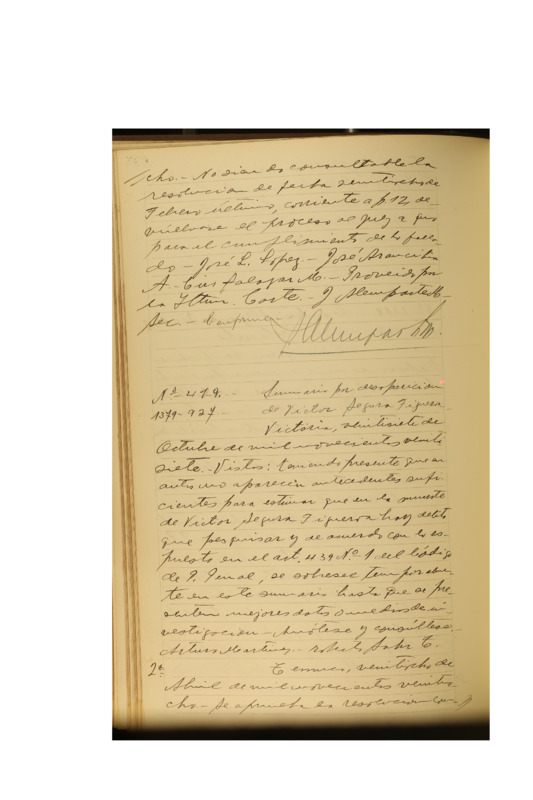 cho.- No siendo consultable la
resolución de fecha veintiocho de
Febrero último, corriente a f. 12 de-
vuélvase el proceso al juez a quo
para el cumplimiento de lo falla-
do - José L. López - José Arancibia
A. - Luis Salazar M. - Proveído por
la Iltma. Corte. - J Alemparte M
Sec. - Conforme -
J Alemparte M.
Nº 419. - Sumario por desaparición
1379-927 - de Victor Segura Figueroa
Victoria, veintisiete de
Octubre de mil novecientos veinti
siete. - Vistos: teniendo presente que en
autos no aparecen antecedentes sufi-
cientes para estimar que en la muerte
de Victor Segura Figueroa hay delito
que pesquisar y de acuerdo con lo es-
puesto en el art. 439 Nº 1 del Código
de P. Penal, se sobresee temporalmen-
te en este sumario hasta que se pre-
senten mejores datos o medios de in-
vestigación - Anótese y consúltese.
Arturo Martinez. - Roberto
2ª Temuco, veintiocho de
Abril de mil novecientos veintio
cho - Se aprueba la resolución con-